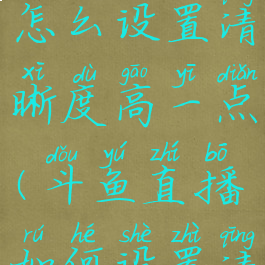 怎么设置清
xī dù gāo yī diǎn
晰度高一点
dǒu yú zhí bō
(斗鱼直播
rú hé shè zhì qīng
如何设置清